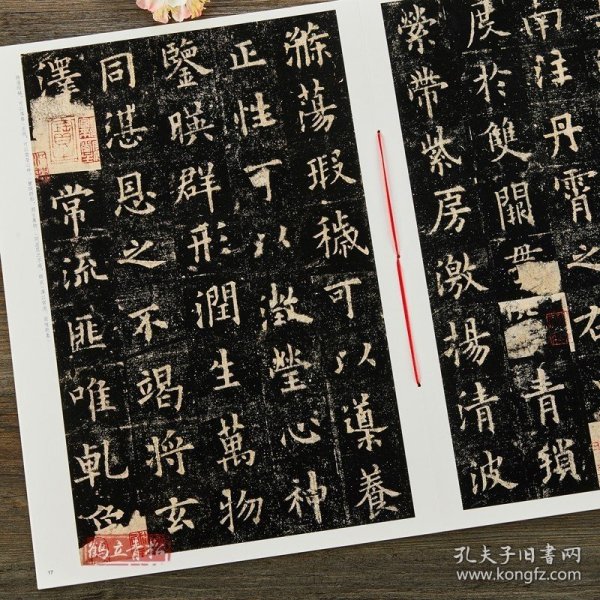 南注丹霄之右
度於雙闕 青瑣
縈帶紫房激揚清波
滌蕩瑕穢可以導養
正性可以澂瑩心神
鑒暎群形潤生萬物
同湛恩之不竭將玄
澤 常流匪唯乹
17
鹤立青松
孔夫子旧书网
www.kongfz.com